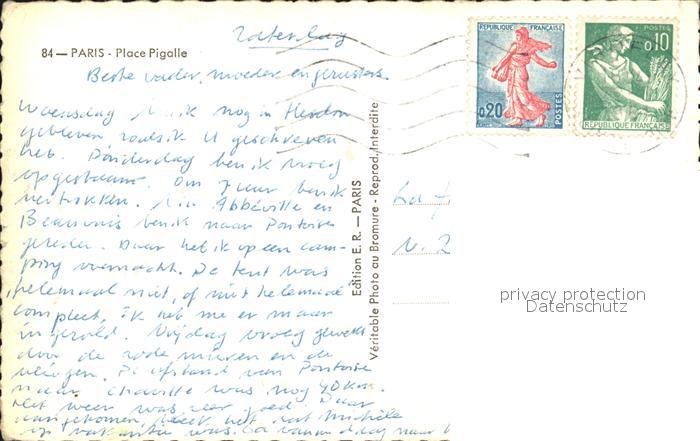 Zaterdag
84 — PARIS - Place Pigalle
Beste vader, moeder en zusters.
Woensdag ik nog in Hesdin
gebleven zoals ik U geschreven
heb. Donderdag ben ik vroeg
opgestaan. Om 7 uur ben ik
vertrokken. Via Abbéville en
Beauvais ben ik naar Pontoise
gereden. Daar heb ik op een cam-
ping overnacht. De tent was
"helemaal niet, of niet helemaal"
compleet, ik heb me er maar
in gerold. Vrijdag vroeg gewekt
door de rode mieren en de
vliegen. De afstand van Pontoise
naar Chaville was nog 40 km.
Het weer was zeer goed. Daar
aangekomen bleek het dat Michèle
op vakantie was. Ga vandaag naar
Edition E. R. — PARIS
Véritable Photo au Bromure - Reprod. Interdite
REPUBLIQUE FRANÇAISE
0,20
POSTES
0,10
POSTES
REPUBLIQUE FRANÇAISE
N. 2
privacy protection
Datenschutz